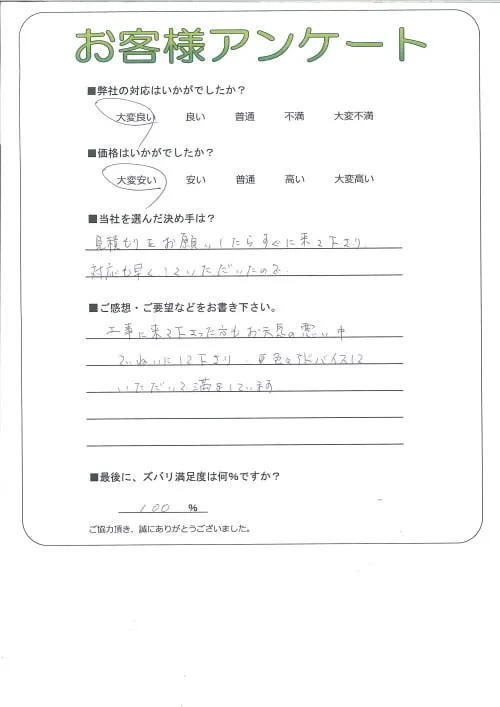 お客様アンケート
■弊社の対応はいかがでしたか？
大変良い 良い 普通 不満 大変不満
■価格はいかがでしたか？
大変安い 安い 普通 高い 大変高い
■当社を選んだ決め手は？
見積もりをお願いしたらすぐに来て下さり
対応も早くしていただいたので
■ご感想・ご要望などをお書き下さい。
工事に来て下さった方もお天気の悪い中
ていねいにして下さり、色々アドバイスして
いただいて満足しています
■最後に、ズバリ満足度は何%ですか？
100 %
ご協力頂き、誠にありがとうございました。